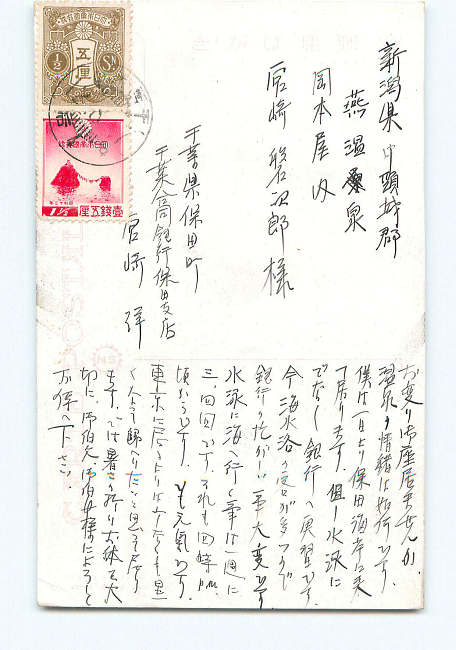 新潟県中頸城郡
燕温泉
岡本屋内
宮崎磐次郎様
千葉県保田町
千葉合同銀行保田支店
宮崎 洋
お変り御座居ませんか
温泉の情緒は如何です
僕は一日より保田海岸に来
て居ります。但し水泳に
でなく銀行へ実習です
今海水浴の客が多いので
銀行も忙がしい事大変です
水泳に海へ行く事は一週に
三、四回です、それも四時
頃からです。とても元気です
東京に居るよりは
帰へりたいと思って居り
ます、では暑さの折りお体を大
切に、御伯父御伯母様によろしく
お伝へ下さい
五厘
½ Sn
大日本帝国郵便
壹銭五厘
1½